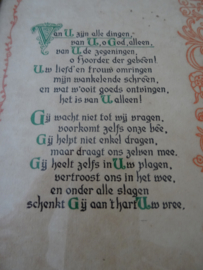 Van U zijn alle dingen,
van U, o God, alleen,
van U de zegeningen,
o hoorder der gebeên!
Uw liefd' en trouw omringen
mijn wankelende schreên,
en wat w'ooit goeds ontvingen,
het is van U alleen!
Gij wacht niet tot wij vragen,
voorkomt zelfs onze beê,
Gij helpt niet enkel dragen,
maar draagt ons zelven mee.
Gij heelt zelfs in Uw plagen,
vertroost ons in het wee,
en onder alle slagen
schenkt Gij aan 't hart Uw vree.